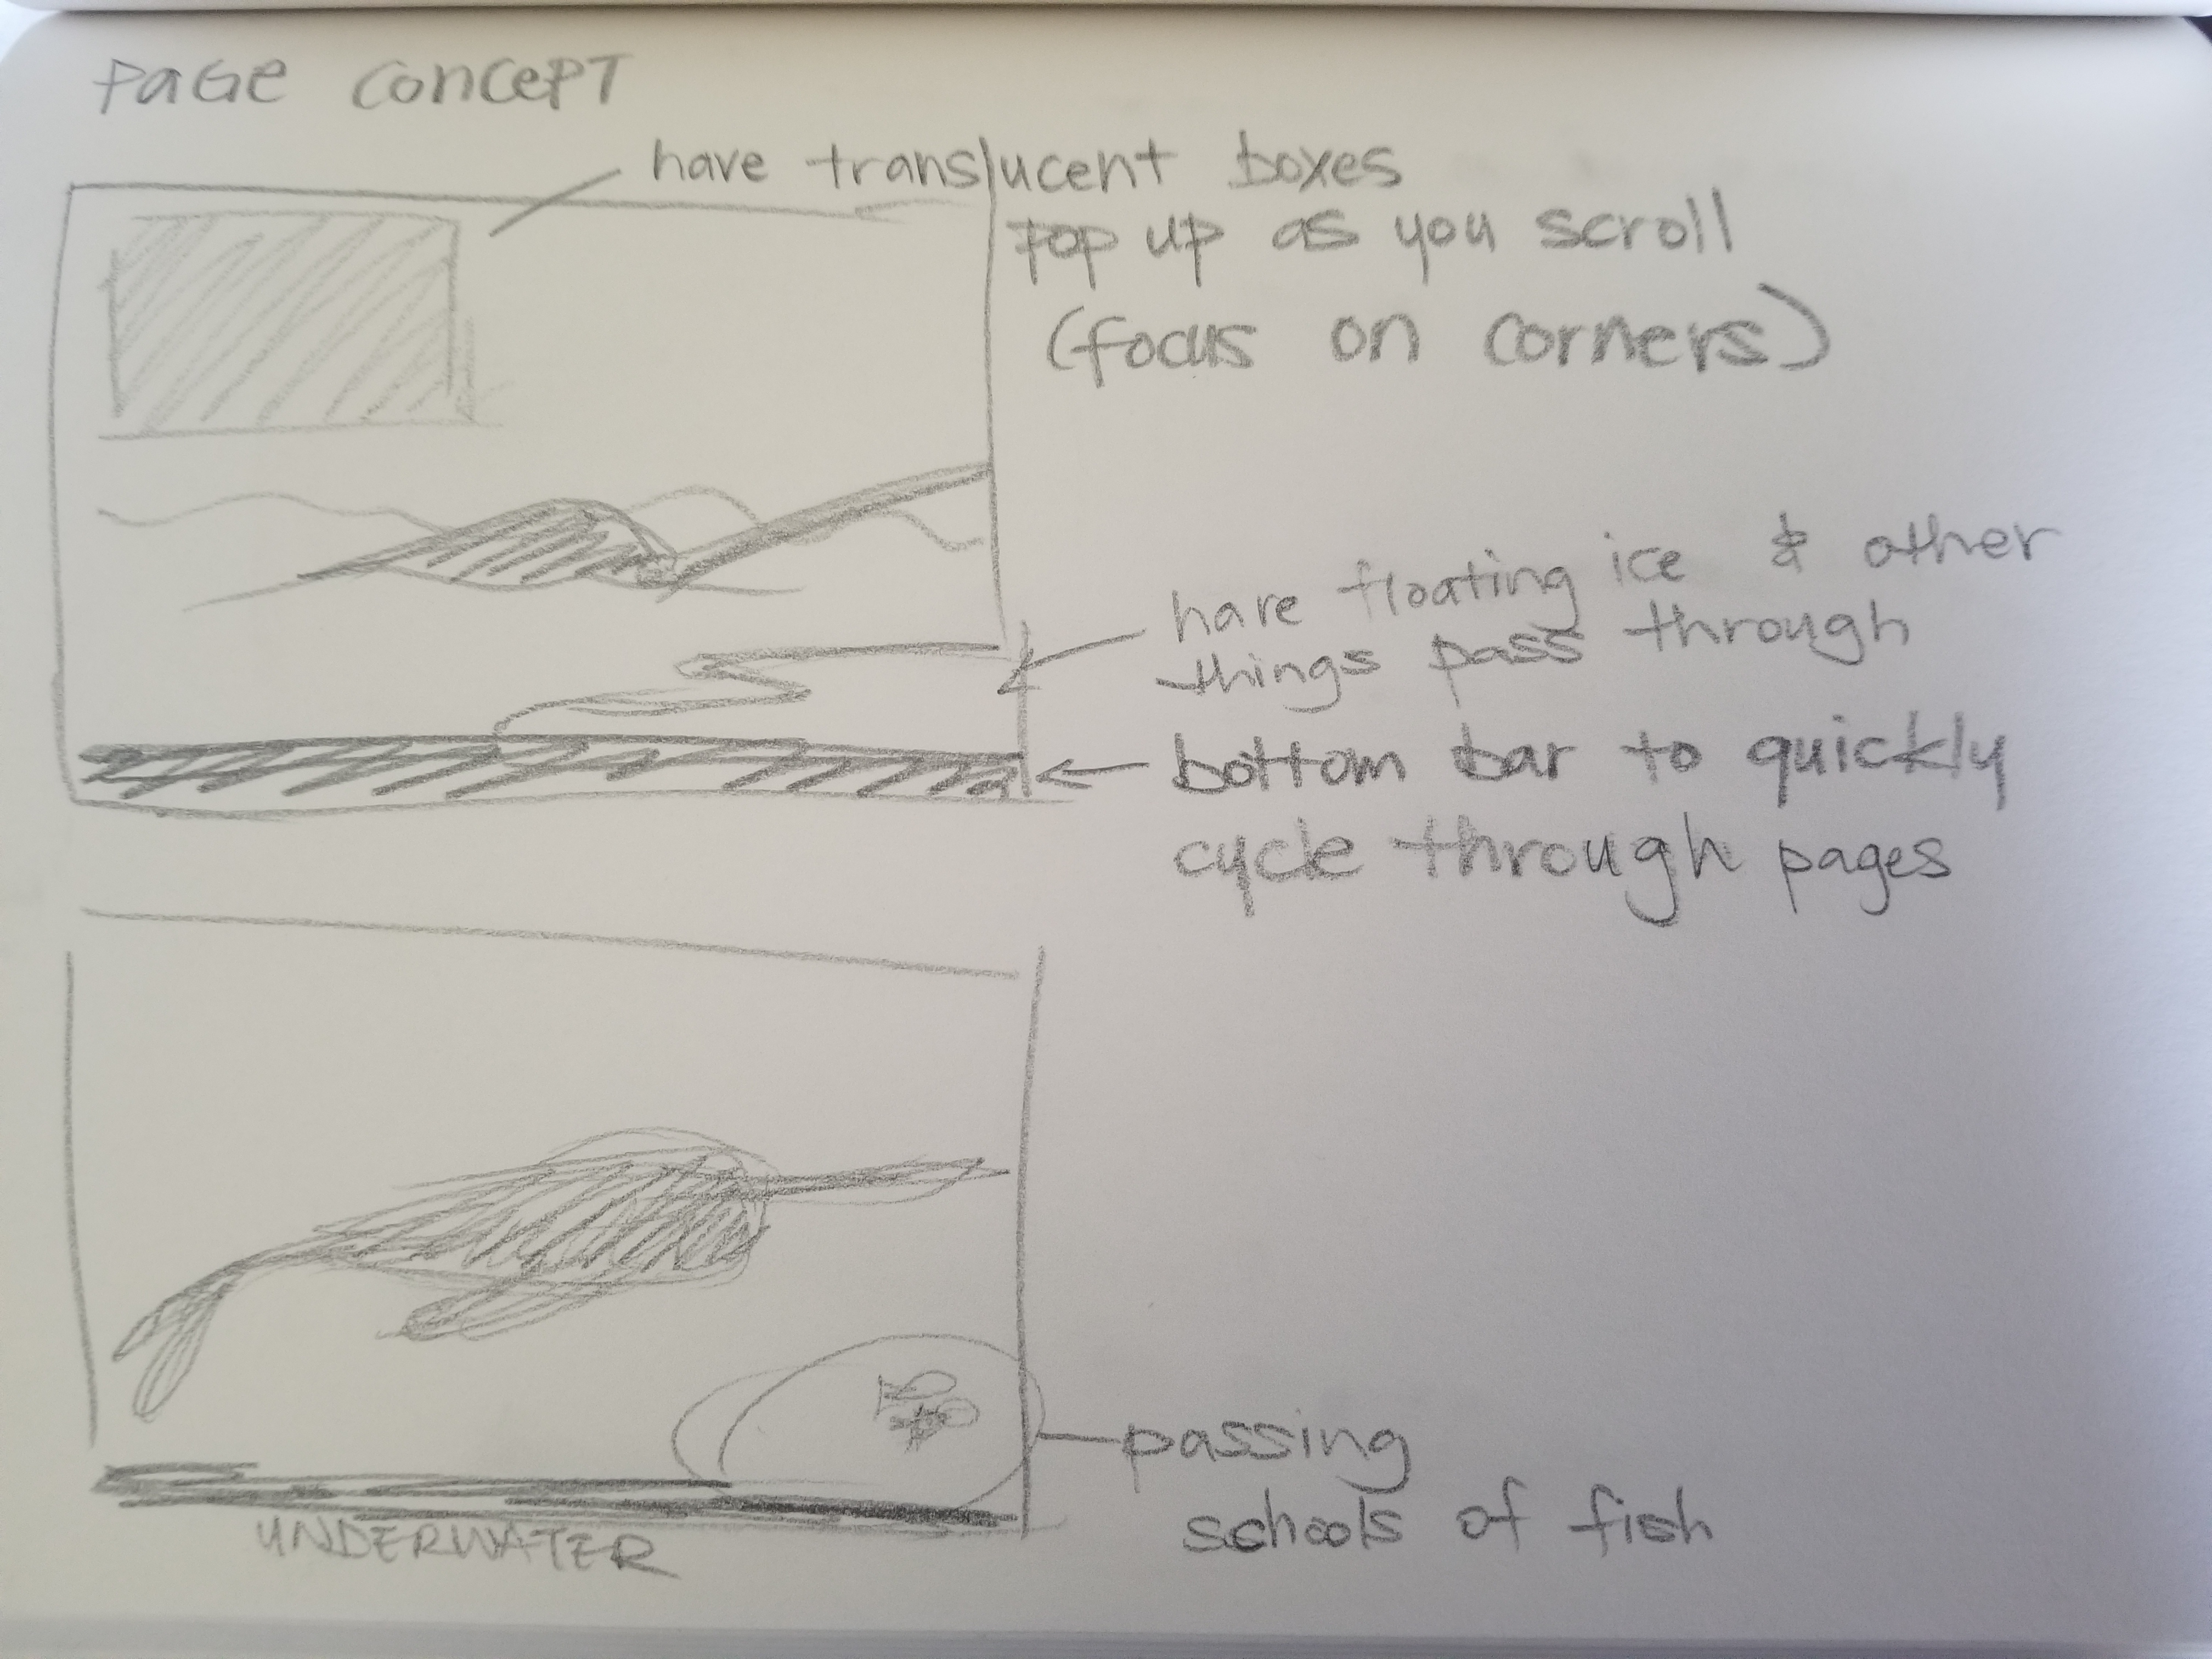 PAGE CONCEPT
have translucent boxes
pop up as you scroll
(focus on corners)
have floating ice & other
things pass through
bottom bar to quickly
cycle through pages
passing
schools of fish
UNDERWATER